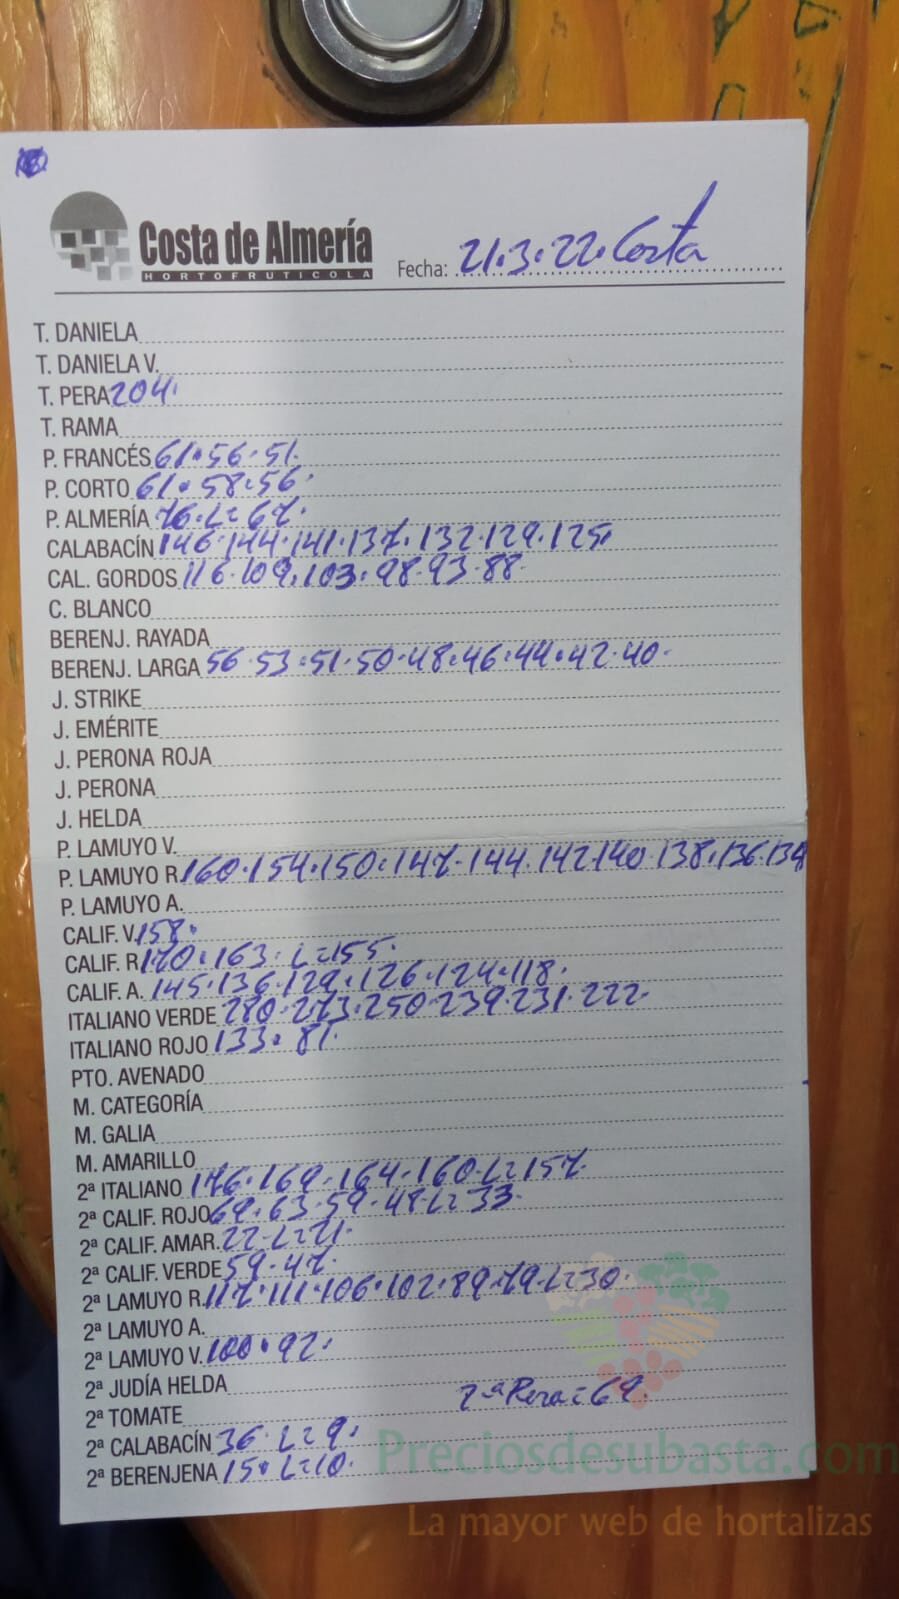 Costa de Almería
HORTOFRUTICOLA
Fecha: 21.3.22. Costa
T. DANIELA
T. DANIELA V.
T. PERA 204.
T. RAMA
P. FRANCÉS 61.56.51.
P. CORTO 61.58.56.
P. ALMERÍA 76.L=67.
CALABACÍN 146.144.141.137.132.129.125.
CAL. GORDOS 116.109.103.98.93.88.
C. BLANCO
BERENJ. RAYADA
BERENJ. LARGA 56.53.51.50.48.46.44.42.40.
J. STRIKE
J. EMÉRITE
J. PERONA ROJA
J. PERONA
J. HELDA
P. LAMUYO V.
P. LAMUYO R. 160.154.150.147.144.142.140.138.136.134
P. LAMUYO A.
CALIF. V. 158.
CALIF. R. 170.163.L=155.
CALIF. A. 145.136.129.126.124.118.
ITALIANO VERDE 280.273.250.239.231.222.
ITALIANO ROJO 133.81.
PTO. AVENADO
M. CATEGORÍA
M. GALIA
M. AMARILLO
2ª ITALIANO 176.169.164.160.L=157.
2ª CALIF. ROJO 69.63.59.48.L=33.
2ª CALIF. AMAR. 22.L=21.
2ª CALIF. VERDE 59.47.
2ª LAMUYO R. 117.111.106.102.89.79.L=30.
2ª LAMUYO A.
2ª LAMUYO V. 100.92.
2ª JUDÍA HELDA
2ª Pera=69.
2ª TOMATE
2ª CALABACÍN 36.L=9.
2ª BERENJENA 15.L=10.
Preciosdesubasta.com
La mayor web de hortalizas